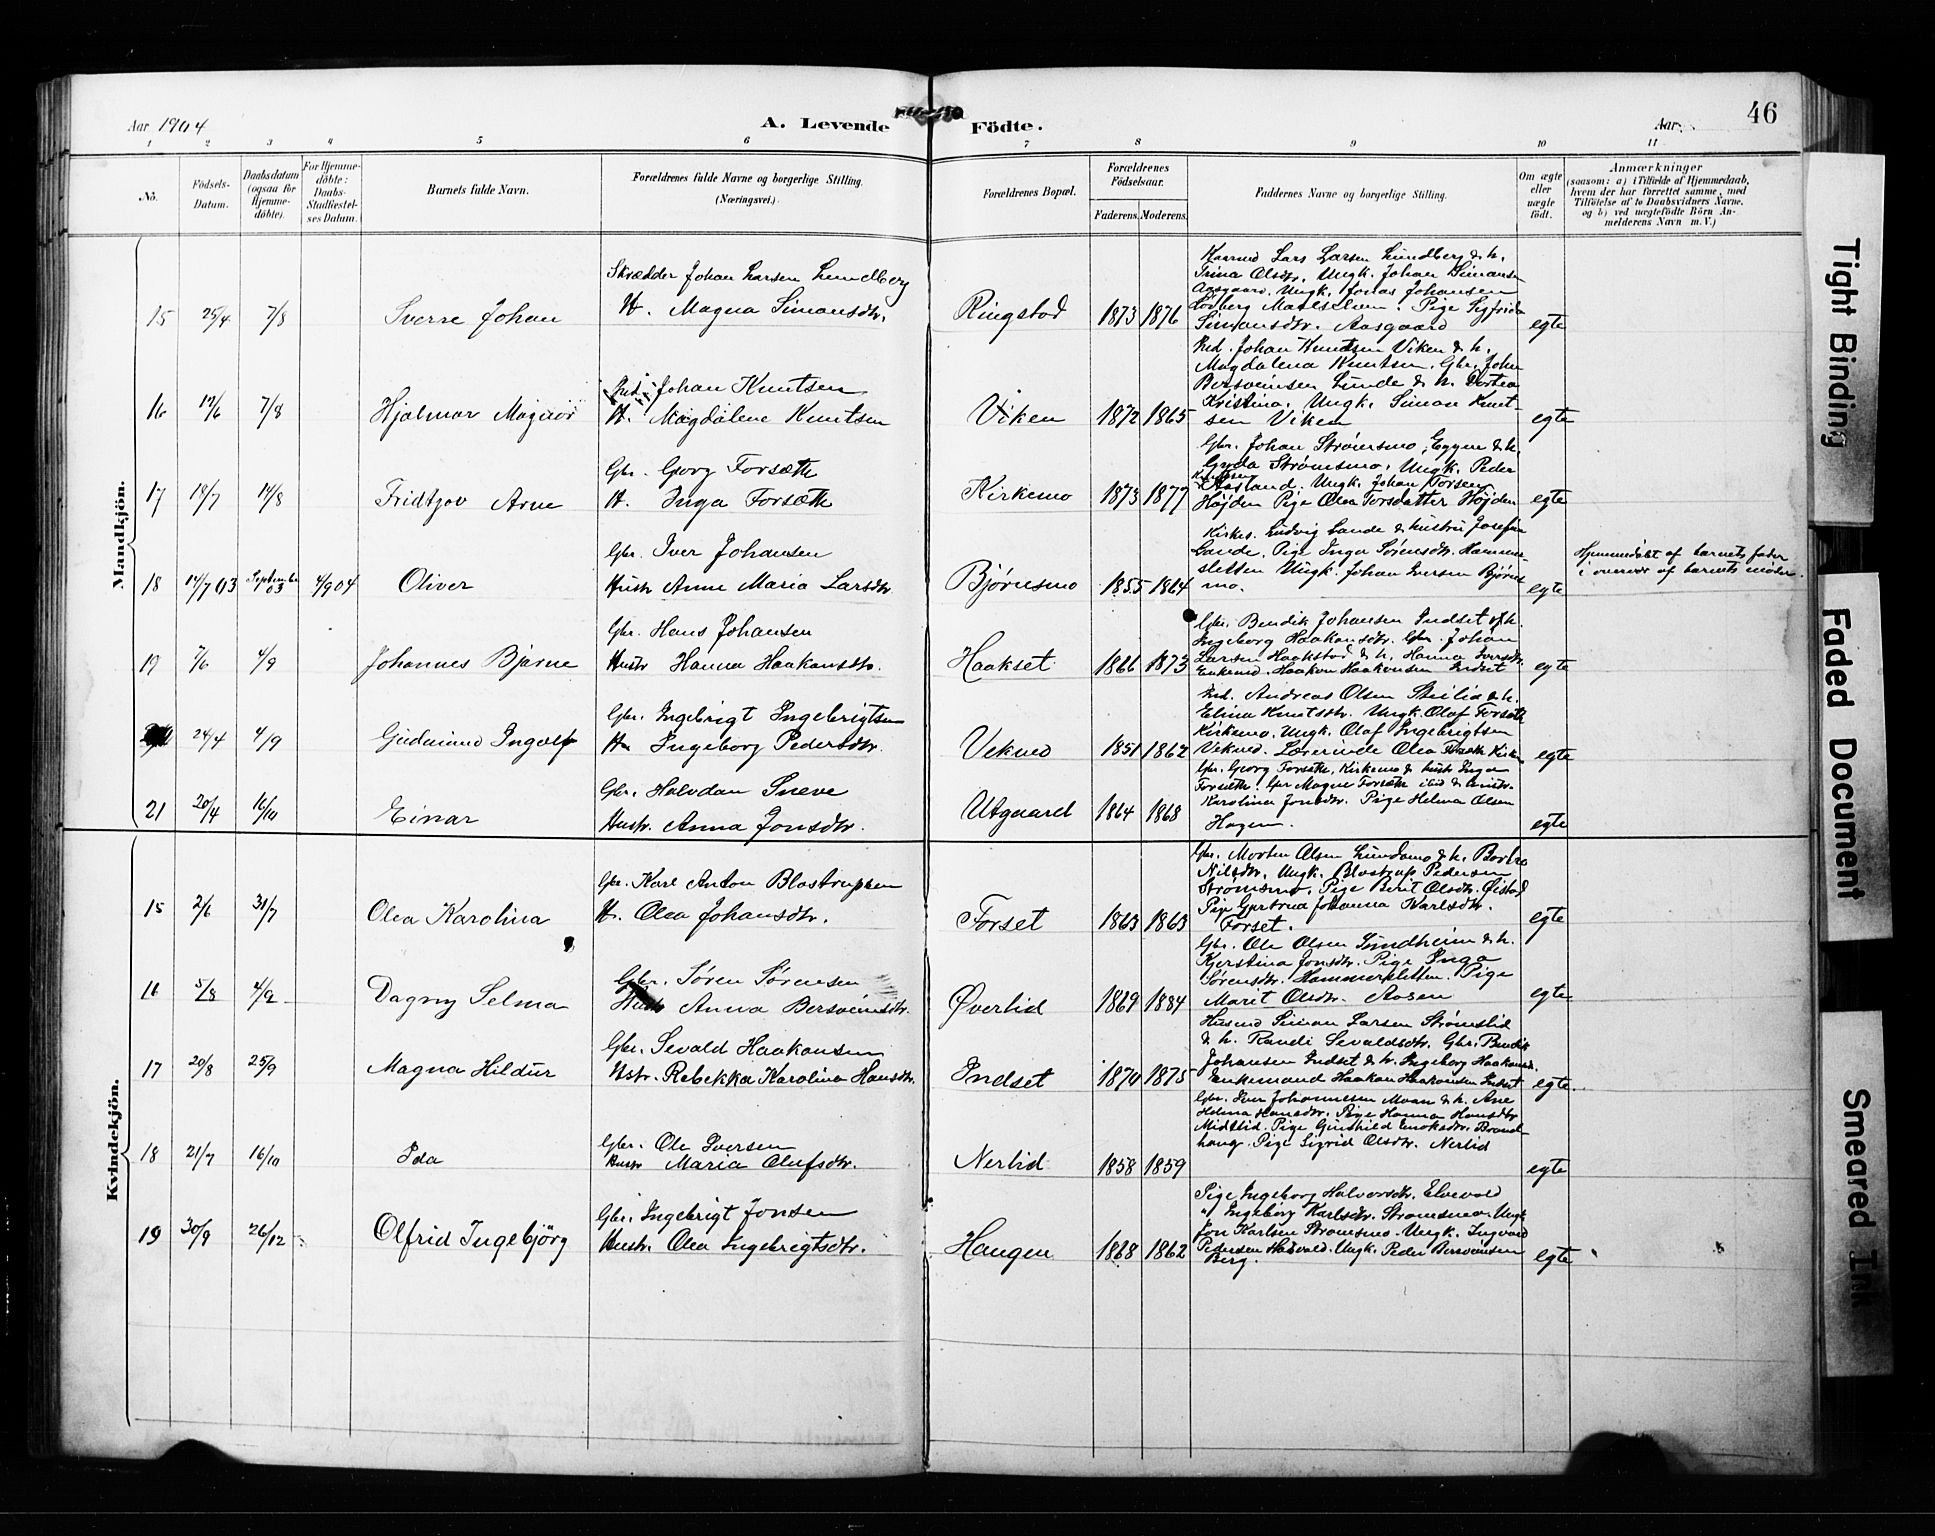 46
Aar 1904
A. Levende Födte.
Aar
1 2 3 4 5 6 7 8 9 10 11
No.
Födsels-
Datum.
Daabsdatum
(ogsaa for
Hjemme-
döbte).
For Hjemme-
döbte:
Daabs-
Stadfæstel-
ses Datum.
Barnets fulde Navn.
Forældrenes fulde Navne og borgerlige Stilling.
(Næringsvei.)
Forældrenes Bopæl.
Forældrenes
Födselsaar.
Faderens. Moderens.
Faddernes Navne og borgerlige Stilling.
Om ægte
eller
uægte
födt.
Anmærkninger
(saasom: a) i Tilfælde af Hjemmedaab,
hvem der har forrettet samme, med
Tilföielse af to Daabsvidners Navne,
og b) ved uægtefödte Börn An-
melderens Navn m. V.)
Mandkjön.
15 25/4 7/8 Sverre Johan
Skrædder Johan Larsen Lundberg
H. Magna Simonsdtr.
Ringstad 1873 1876
Kaarmd Lars Larsen Lundberg & h.
Trina Olsdtr. Ungk. Johan Simonsen
Aasgaard. Ungk. Jonas Johansen
Maalselven. Pige Sigfrida
Simonsdtr. Aasgaard
egte
16 12/6 7/8 Hjalmar Magnor
Ind. Johan Knutsen
H. Magdalene Knutsen
Viken 1872 1865
Ind. Johan Knutsen Viken & h.
Magdalena Knutsen. Gbr. John
Bersveinsen Lunde & h. Dortea
Kristina. Ungk. Simon Knut-
sen Viken
egte
17 18/7 14/8 Fridtjov Arne
Gbr. Georg Forsæth
H. Inga Forsæth
Kirkemo 1873 1877
Gbr. Johan Strømsmo, Eggen & h.
Gurda Strømsmo. Ungk. Peder
Aasland. Ungk. Johan Torsen
Højden Pige Olea Torsdatter Højden
egte
18 14/7 03 September 03 4/9 04 Oliver
Gbr. Iver Johansen
Hustr Anne Maria Larsdtr.
Bjørnsmo 1855 1864
Kirkes. Ludvig Lande & hustru Josefine
Lande. Pige Inga Sørensdtr. Hammer-
sletten Ungk. Johan Iversen Bjørns-
mo.
egte
Hjemmedøbt af barnets fader
i overvær af barnets moder.
19 7/6 4/9 Johannes Bjarne
Gbr. Hans Johansen
Hustr Hanna Haakonsdtr.
Haakset 1866 1873
Gbr. Bendik Johansen Indset & h.
Ingeborg Haakonsdtr. Gbr. Johan
Larsen Haakstad & h. Hanna Iversdtr.
Enkemd. Haakon Haakonsen Indset
egte
24/4 4/9 Gudmund Ingolf
Gbr. Ingebrigt Ingebrigtsen
H. Ingeborg Pedersdtr.
Vekmo 1851 1862
Ind. Andreas Olsen Stulia & h.
Elina Knutsdtr. Ungk. Olaf Forsæth
Kirkemo. Ungk. Olaf Ingebrigtsen
Vekmo. Lærerinde Olea
egte
21 20/4 16/10 Einar
Gbr. Halvdan Sneve
Hustr. Anna Jonsdtr.
Utgaard 1864 1868
Gbr. Georg Forsæth, Kirkemo & hustr Inga
Forsæth. Gbr Magnus Forsæth ibid & hustr.
Karolina Jonsdtr. Pige Helma Olsen
Hagen.
egte
Kvindekjön.
15 2/6 31/7 Olea Karolina
Gbr. Karl Anton Blostrupsen
H. Olea Johansdtr.
Forset 1863 1863
Gbr. Morten Olsen Lundamo & h. Bortro
Nilsdtr. Ungk. Blostrup Pedersen
Strømsmo. Pige Berit Olsdtr. Øistad
Pige Gjertrud Johanna Karlsdtr.
Forset.
egte
16 5/8 4/9 Dagny Selma
Gbr. Søren Sørensen
Hustr Anna Bersveinsdtr.
Øverlid 1869 1884
Gbr. Ole Olsen Sundheim & h.
Kjerstina Jonsdtr. Pige Inga
Sørensdtr. Hammersletten. Pige
Marit Olsdtr. Aasen
egte
17 20/8 25/9 Magna Hildur
Gbr. Sevald Haakonsen
Hstr. Rebekka Karolina Hansdtr.
Indset 1870 1875
Husmd Simon Larsen Strømslid
& h. Randi Sevaldsdtr. Gbr. Bendik
Johansen Indset & h. Ingeborg Haakonsd.
Enkemand Haakon Haakonsen Indset
egte.
18 21/7 16/10 Ida
Gbr. Ole Iversen
Hustr Maria Olufsdtr.
Nerlid 1858 1859
Gbr. Iver Johannesen Moan & h. Ane
Helma Hansdtr. Pige Hanna Hansdtr
Midtlid. Pige Gunhild Enoksdtr. Brand-
haug. Pige Sigrid Olsdtr. Nerlid
egte
19 30/9 26/12 Olfrid Ingebjörg
Gbr. Ingebrigt Jonsen
Hustr. Olea Ingebrigtsdtr.
Haugen 1868 1862
Pige Ingeborg Halvorsdtr. Elvevold
" Ingeborg Karlsdtr. Strømsmo. Ungk
Jon Karlsen Strømsmo. Ungk. Ingvald
Pedersen Ungk. Peder Bersveinsen
Berg.
egte
Tight Binding
Faded Document
Smeared Ink